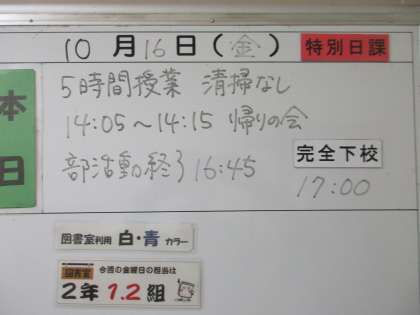 10月16日(金) 特別日課
本日
5時間授業 清掃なし
14:05〜14:15 帰りの会
部活動終了16:45
完全下校
17:00
図書室利用 白・青 カラー
図書室 今週の金曜日の担当は
2年1.2組